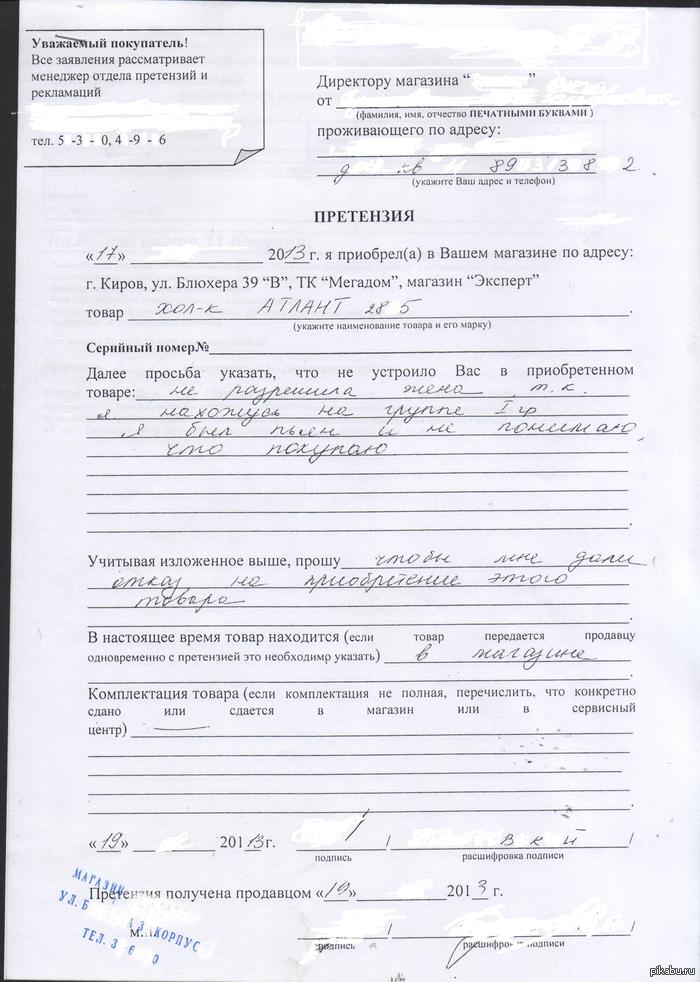 Уважаемый покупатель!
Все заявления рассматривает
менеджер отдела претензий и
рекламаций
тел. 5 -3 - 0, 4 -9 - 6
Директору магазина “ ”
от
(фамилия, имя, отчество ПЕЧАТНЫМИ БУКВАМИ )
проживающего по адресу:
д кв 89 3 8 2
(укажите Ваш адрес и телефон)
ПРЕТЕНЗИЯ
«17» 2013г. я приобрел(а) в Вашем магазине по адресу:
г. Киров, ул. Блюхера 39 “В”, ТК “Мегадом”, магазин “Эксперт”
товар хол-к АТЛАНТ 28 5
(укажите наименование товара и его марку)
Серийный номер№
Далее просьба указать, что не устроило Вас в приобретенном
товаре: не разрешила жена, т.к.
я нахожусь на группе I гр
я был пьян и не понимаю,
что покупаю
Учитывая изложенное выше, прошу чтобы мне дали
отказ на приобретение этого
товара
В настоящее время товар находится (если товар передается продавцу
одновременно с претензией это необходимо указать) в магазине
Комплектация товара (если комплектация не полная, перечислить, что конкретно
сдано или сдается в магазин или в сервисный
центр)
«19» 2013г. / в к й /
подпись расшифровка подписи
Претензия получена продавцом «19» 2013 г.
МАГАЗИН
УЛ. Б
А 3, КОРПУС
ТЕЛ. 3 -6 0
м.п. / /
подпись расшифровка подписи
pikabu.ru